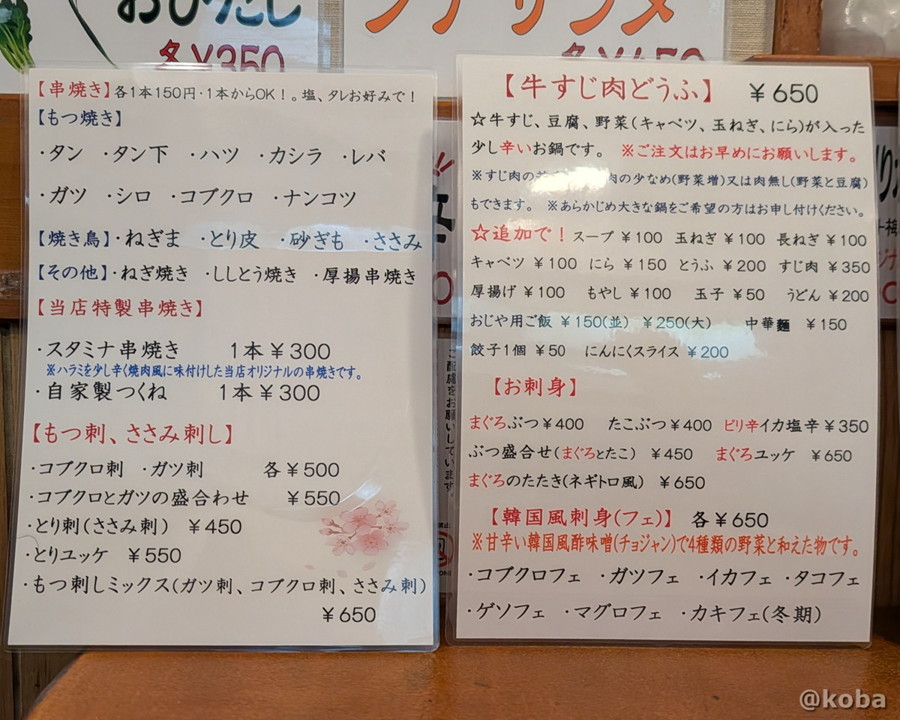 おひたし
各¥350
各¥450
【串焼き】各1本150円・1本からOK!。塩、タレお好みで!
【もつ焼き】
・タン ・タン下 ・ハツ ・カシラ ・レバ
・ガツ ・シロ ・コブクロ ・ナンコツ
【焼き鳥】・ねぎま ・とり皮 ・砂ぎも ・ささみ
【その他】・ねぎ焼き ・ししとう焼き ・厚揚串焼き
【当店特製串焼き】
・スタミナ串焼き 1本¥300
※ハラミを少し辛く焼肉風に味付けした当店オリジナルの串焼きです。
・自家製つくね 1本¥300
【もつ刺、ささみ刺し】
・コブクロ刺 ・ガツ刺 各¥500
・コブクロとガツの盛合わせ ¥550
・とり刺(ささみ刺) ¥450
・とりユッケ ¥550
・もつ刺しミックス(ガツ刺、コブクロ刺、ささみ刺)
¥650
【牛すじ肉どうふ】 ¥650
☆牛すじ、豆腐、野菜(キャベツ、玉ねぎ、にら)が入った
少し辛いお鍋です。 ※ご注文はお早めにお願いします。
※すじ肉の 肉の少なめ(野菜増)又は肉無し(野菜と豆腐)
もできます。 ※あらかじめ大きな鍋をご希望の方はお申し付けください。
☆追加で!スープ ¥100 玉ねぎ ¥100 長ねぎ ¥100
キャベツ ¥100 にら ¥150 とうふ ¥200 すじ肉 ¥350
厚揚げ ¥100 もやし ¥100 玉子 ¥50 うどん ¥200
おじや用ご飯 ¥150(並) ¥250(大) 中華麺 ¥150
餃子1個 ¥50 にんにくスライス ¥200
【お刺身】
まぐろぶつ ¥400 たこぶつ ¥400 ピリ辛イカ塩辛 ¥350
ぶつ盛合せ(まぐろとたこ) ¥450 まぐろユッケ ¥650
まぐろのたたき(ネギトロ風) ¥650
【韓国風刺身(フェ)】 各¥650
※甘辛い韓国風酢味噌(チョジャン)で4種類の野菜と和えた物です。
・コブクロフェ ・ガツフェ ・イカフェ ・タコフェ
・ゲソフェ ・マグロフェ ・カキフェ(冬期)
ご配慮をお願いしています。
@koba